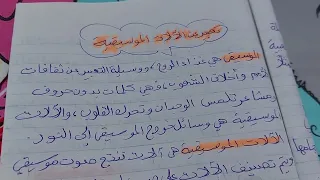 تعريف الآلات الموسيقية
الموسيقى هي غذاء الروح، ووسيلة التعبير عن ثقافات
الأمم وأخلاق الشعوب، فهي كلمات بدون حروف
ومشاعر تلمس الوجدان وتحرك القلوب، والآلات
الموسيقية هي وسائل خروج الموسيقى إلى النور.
الآلات الموسيقية هي آلات تنتج صوت موسيقي
ويتم تصنيف الآلات على